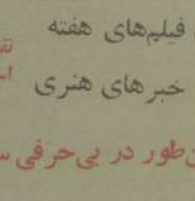 فیلمهای هفته
خبرهای هنری
طور در بی‌حرفی